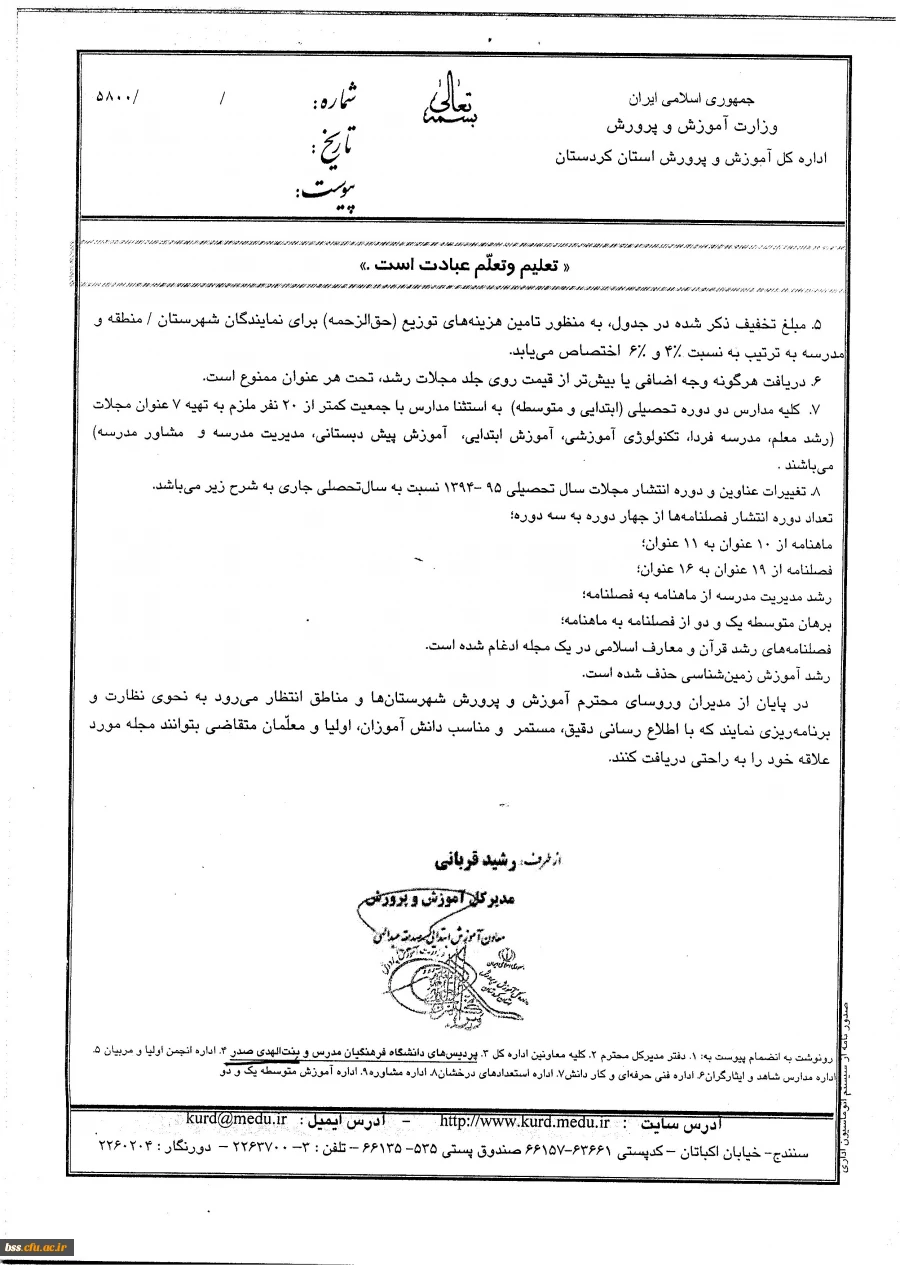 جمهوری اسلامی ایران
وزارت آموزش و پرورش
اداره کل آموزش و پرورش استان کردستان
بسمه تعالی
شماره: / /۵۸۰۰
تاریخ:
پیوست:
« تعلیم وتعلّم عبادت است .»
۵. مبلغ تخفیف ذکر شده در جدول، به منظور تامین هزینه‌های توزیع (حق‌الزحمه) برای نمایندگان شهرستان / منطقه و
مدرسه به ترتیب به نسبت ۴٪ و ۶٪ اختصاص می‌یابد.
۶. دریافت هرگونه وجه اضافی یا بیش‌تر از قیمت روی جلد مجلات رشد، تحت هر عنوان ممنوع است.
۷. کلیه مدارس دو دوره تحصیلی (ابتدایی و متوسطه) به استثنا مدارس با جمعیت کمتر از ۲۰ نفر ملزم به تهیه ۷ عنوان مجلات
(رشد معلم، مدرسه فردا، تکنولوژی آموزشی، آموزش ابتدایی، آموزش پیش دبستانی، مدیریت مدرسه و مشاور مدرسه)
می‌باشند .
۸. تغییرات عناوین و دوره انتشار مجلات سال تحصیلی ۹۵ -۱۳۹۴ نسبت به سال‌تحصلی جاری به شرح زیر می‌باشد.
تعداد دوره انتشار فصلنامه‌ها از چهار دوره به سه دوره؛
ماهنامه از ۱۰ عنوان به ۱۱ عنوان؛
فصلنامه از ۱۹ عنوان به ۱۶ عنوان؛
رشد مدیریت مدرسه از ماهنامه به فصلنامه؛
برهان متوسطه یک و دو از فصلنامه به ماهنامه؛
فصلنامه‌های رشد قرآن و معارف اسلامی در یک مجله ادغام شده است.
رشد آموزش زمین‌شناسی حذف شده است.
در پایان از مدیران وروسای محترم آموزش و پرورش شهرستان‌ها و مناطق انتظار می‌رود به نحوی نظارت و
برنامه‌ریزی نمایند که با اطلاع رسانی دقیق، مستمر و مناسب دانش آموزان، اولیا و معلّمان متقاضی بتوانند مجله مورد
علاقه خود را به راحتی دریافت کنند.
از طرف: رشید قربانی
مدیرکل آموزش و پرورش
معاون آموزش ابتدائی
رونوشت به انضمام پیوست به: ۱. دفتر مدیرکل محترم ۲. کلیه معاونین اداره کل ۳. پردیس‌های دانشگاه فرهنگیان مدرس و بنت‌الهدی صدر ۴. اداره انجمن اولیا و مربیان ۵.
اداره مدارس شاهد و ایثارگران۶. اداره فنی حرفه‌ای و کار دانش۷. اداره استعدادهای درخشان۸. اداره مشاوره۹. اداره آموزش متوسطه یک و دو
آدرس سایت : http://www.kurd.medu.ir - آدرس ایمیل : kurd@medu.ir
سنندج- خیابان اکباتان – کدپستی ۶۳۶۶۱-۶۶۱۵۷ صندوق پستی ۵۳۵- ۶۶۱۳۵ – تلفن : ۳- ۲۲۶۳۷۰۰ – دورنگار : ۲۲۶۰۲۰۴
صدور نامه از سیستم اتوماسیون اداری
bss.cfu.ac.ir